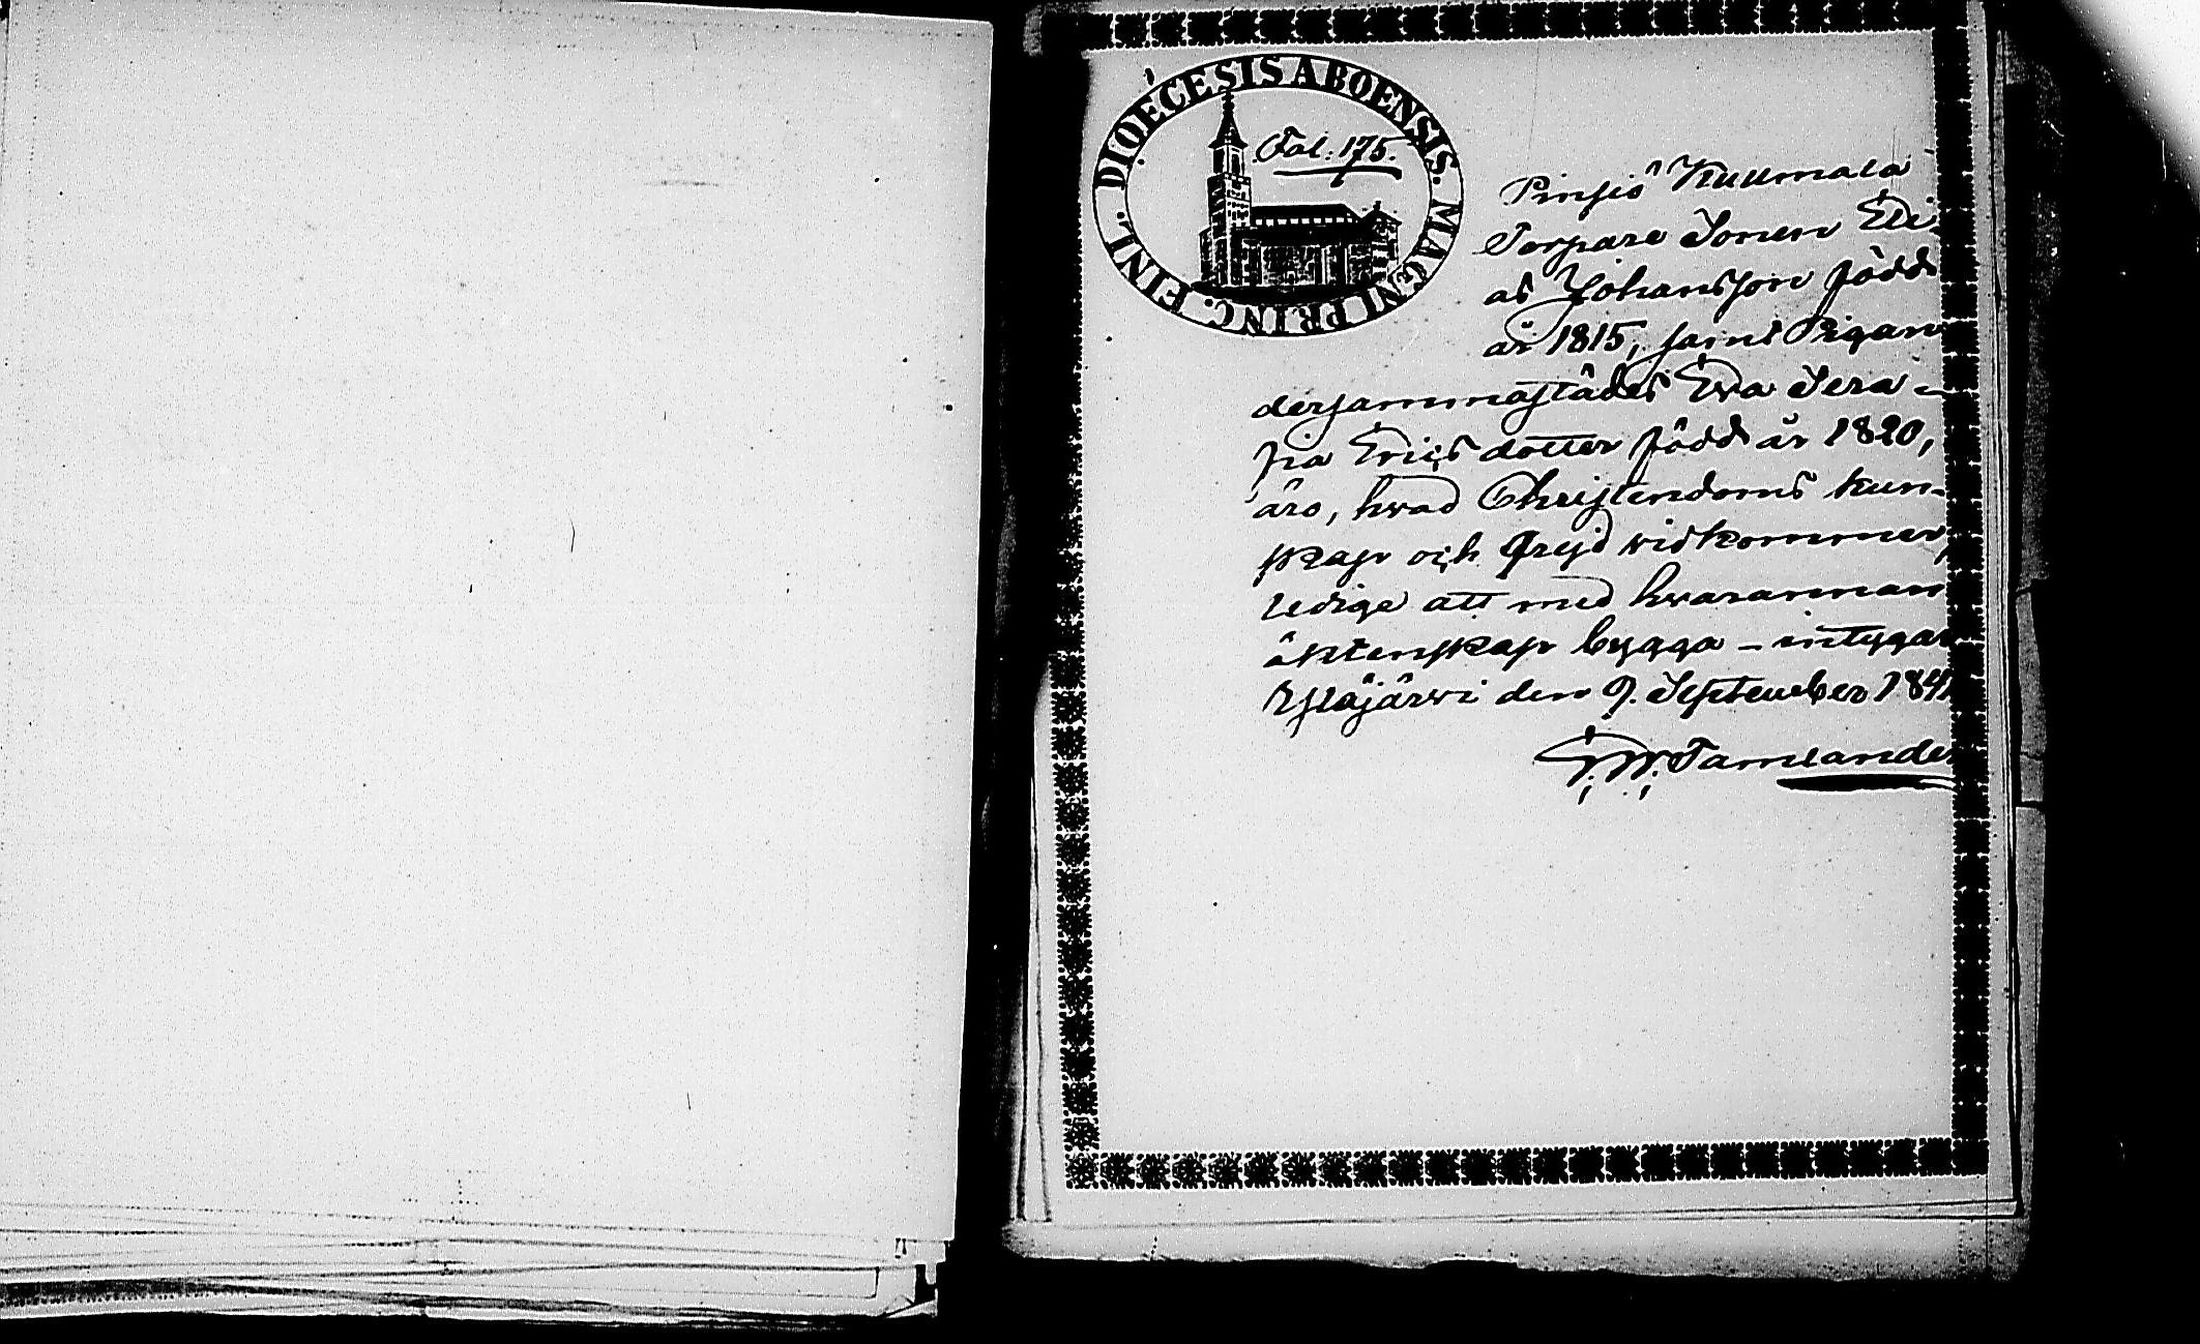 DIOECESIS ABOENSIS. MAGNI PRINC. FINL.
Fol: 175.
Pinsiö Kuumala
Torpare Sonen Eli-
as Johansson född
år 1815, samt Pigan
dersammastädes Eva Sera-
fia Ericsdotter född år 1820,
äro, hvad Christendoms kun-
skap och frejd vidkommer,
ledige att med hvarannan
äktenskap bygga – intygar
Ylöjärvi den 9. September 1841
G. W. Tamelander